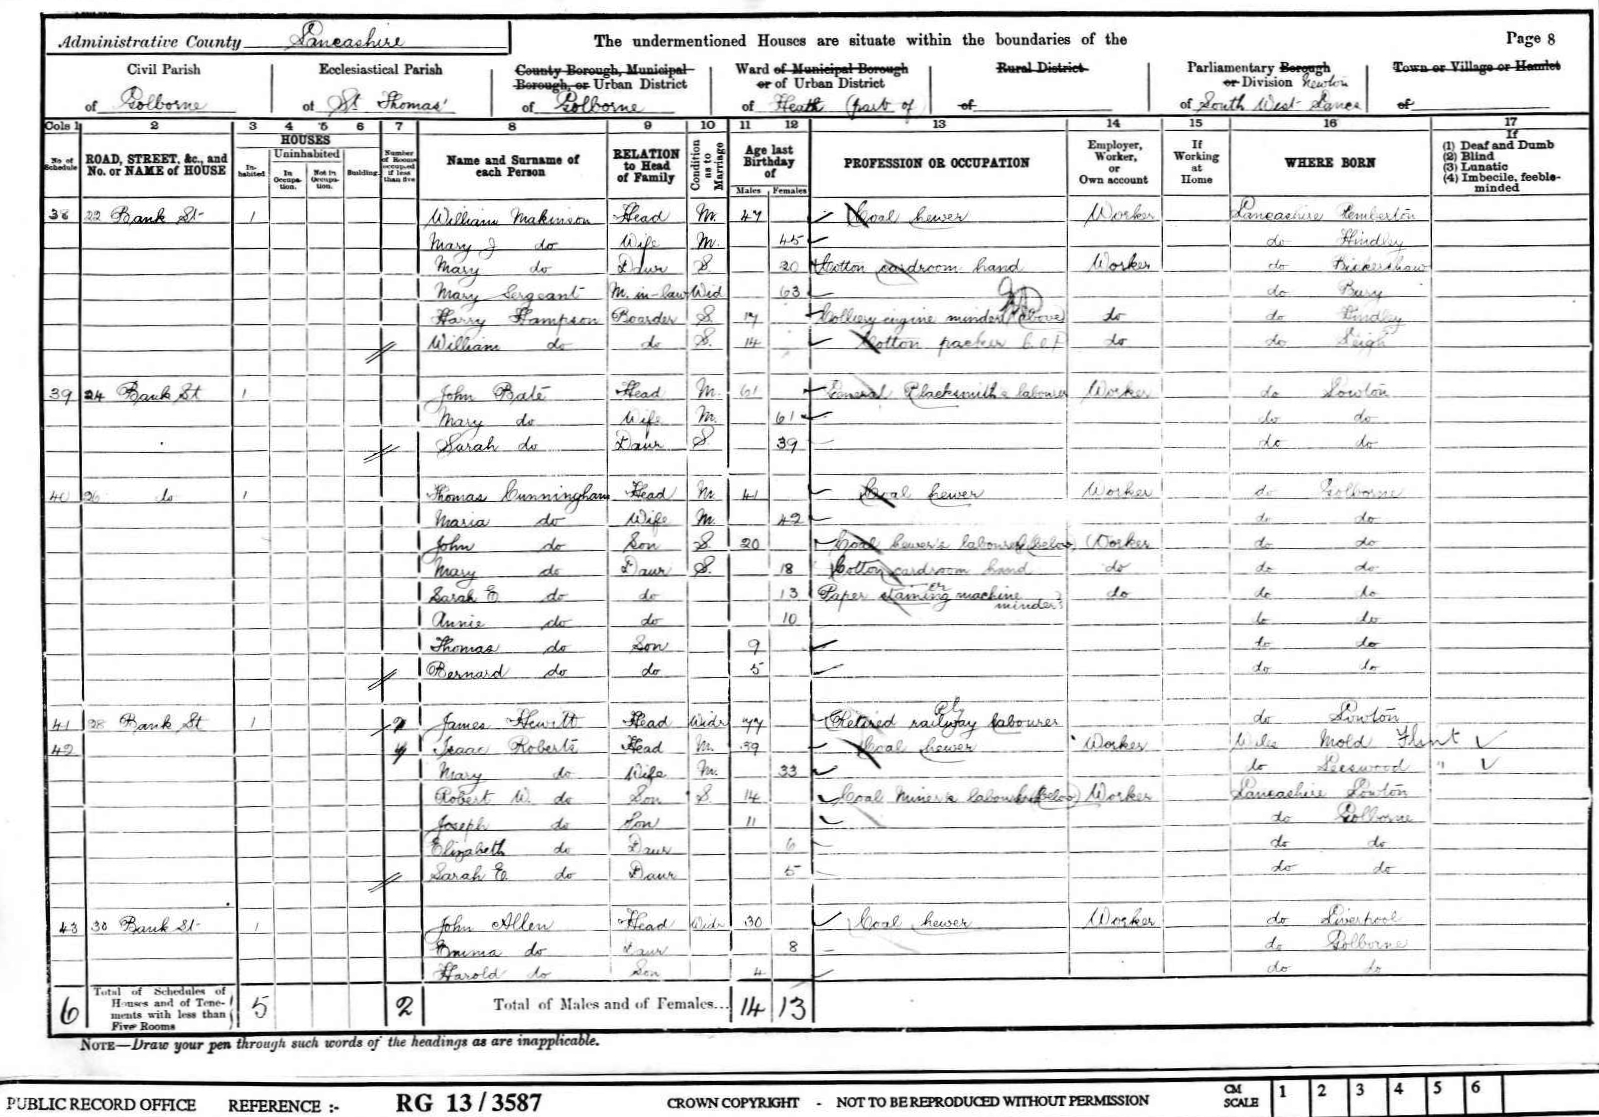 Administrative County Lancashire The undermentioned Houses are situate within the boundaries of the Page 8
Civil Parish Ecclesiastical Parish County Borough, Municipal Borough, or Urban District Ward of Municipal Borough or of Urban District Rural District Parliamentary Borough or Division Newton Town or Village or Hamlet
of Golborne of St Thomas' of Golborne of Heath (part of) of of South West Lancs of
Cols 1 2 3 4 5 6 7 8 9 10 11 12 13 14 15 16 17
No of Schedule ROAD, STREET, &c., and No. or NAME of HOUSE HOUSES Inhabited Uninhabited In Occupation. Not in Occupation. Building. Number of Rooms occupied if less than five Name and Surname of each Person RELATION to Head of Family Condition as to Marriage Age last Birthday of Males Females PROFESSION OR OCCUPATION Employer, Worker, or Own account If Working at Home WHERE BORN If (1) Deaf and Dumb (2) Blind (3) Lunatic (4) Imbecile, feeble-minded
38 22 Bank St 1 William Makinson Head M. 47 Coal hewer Worker Lancashire Pemberton
Mary J do Wife M. 45 do Hindley
Mary do Daur S. 20 Cotton cardroom hand Worker do Bickershaw
Mary Sergeant M. in-law Wid 63 do Bury
Harry Hampson Boarder S 17 Colliery engine minder (above) do do Hindley
William do do S. 14 Cotton packer do do Leigh
39 24 Bank St 1 John Bate Head M. 61 General Blacksmith's labourer Worker do Lowton
Mary do Wife M. 61 do do
Sarah do Daur S 39 do do
40 26 do 1 Thomas Cunningham Head M. 41 Coal hewer Worker do Golborne
Maria do Wife M. 42 do do
John do Son S 20 Coal hewer's labourer (below) Worker do do
Mary do Daur S. 18 Cotton cardroom hand do do do
Sarah E do do 13 Paper staming er machine minder do do do
Annie do do 10 do do
Thomas do Son 9 do do
Bernard do do 5 do do
41 28 Bank St 1 2 James Hewitt Head Widr 77 Retired railway labourer do Lowton
42 4 Isaac Roberts Head M. 39 Coal hewer Worker Wales Mold Flint
Mary do Wife M. 33 do Leeswood "
Robert W. do Son S 14 Coal Miner's labourer (below) Worker Lancashire Lowton
Joseph do Son 11 do Golborne
Elizabeth do Daur 6 do do
Sarah E do Daur 5 do do
43 30 Bank St 1 John Allen Head Widr 30 Coal hewer Worker do Liverpool
Emma do Daur 8 do Golborne
Harold do Son 4 do do
6 Total of Schedules of Houses and of Tenements with less than Five Rooms 5 2 Total of Males and of Females... 14 13
NOTE—Draw your pen through such words of the headings as are inapplicable.
PUBLIC RECORD OFFICE REFERENCE :- RG 13 / 3587 CROWN COPYRIGHT - NOT TO BE REPRODUCED WITHOUT PERMISSION CM SCALE 1 2 3 4 5 6